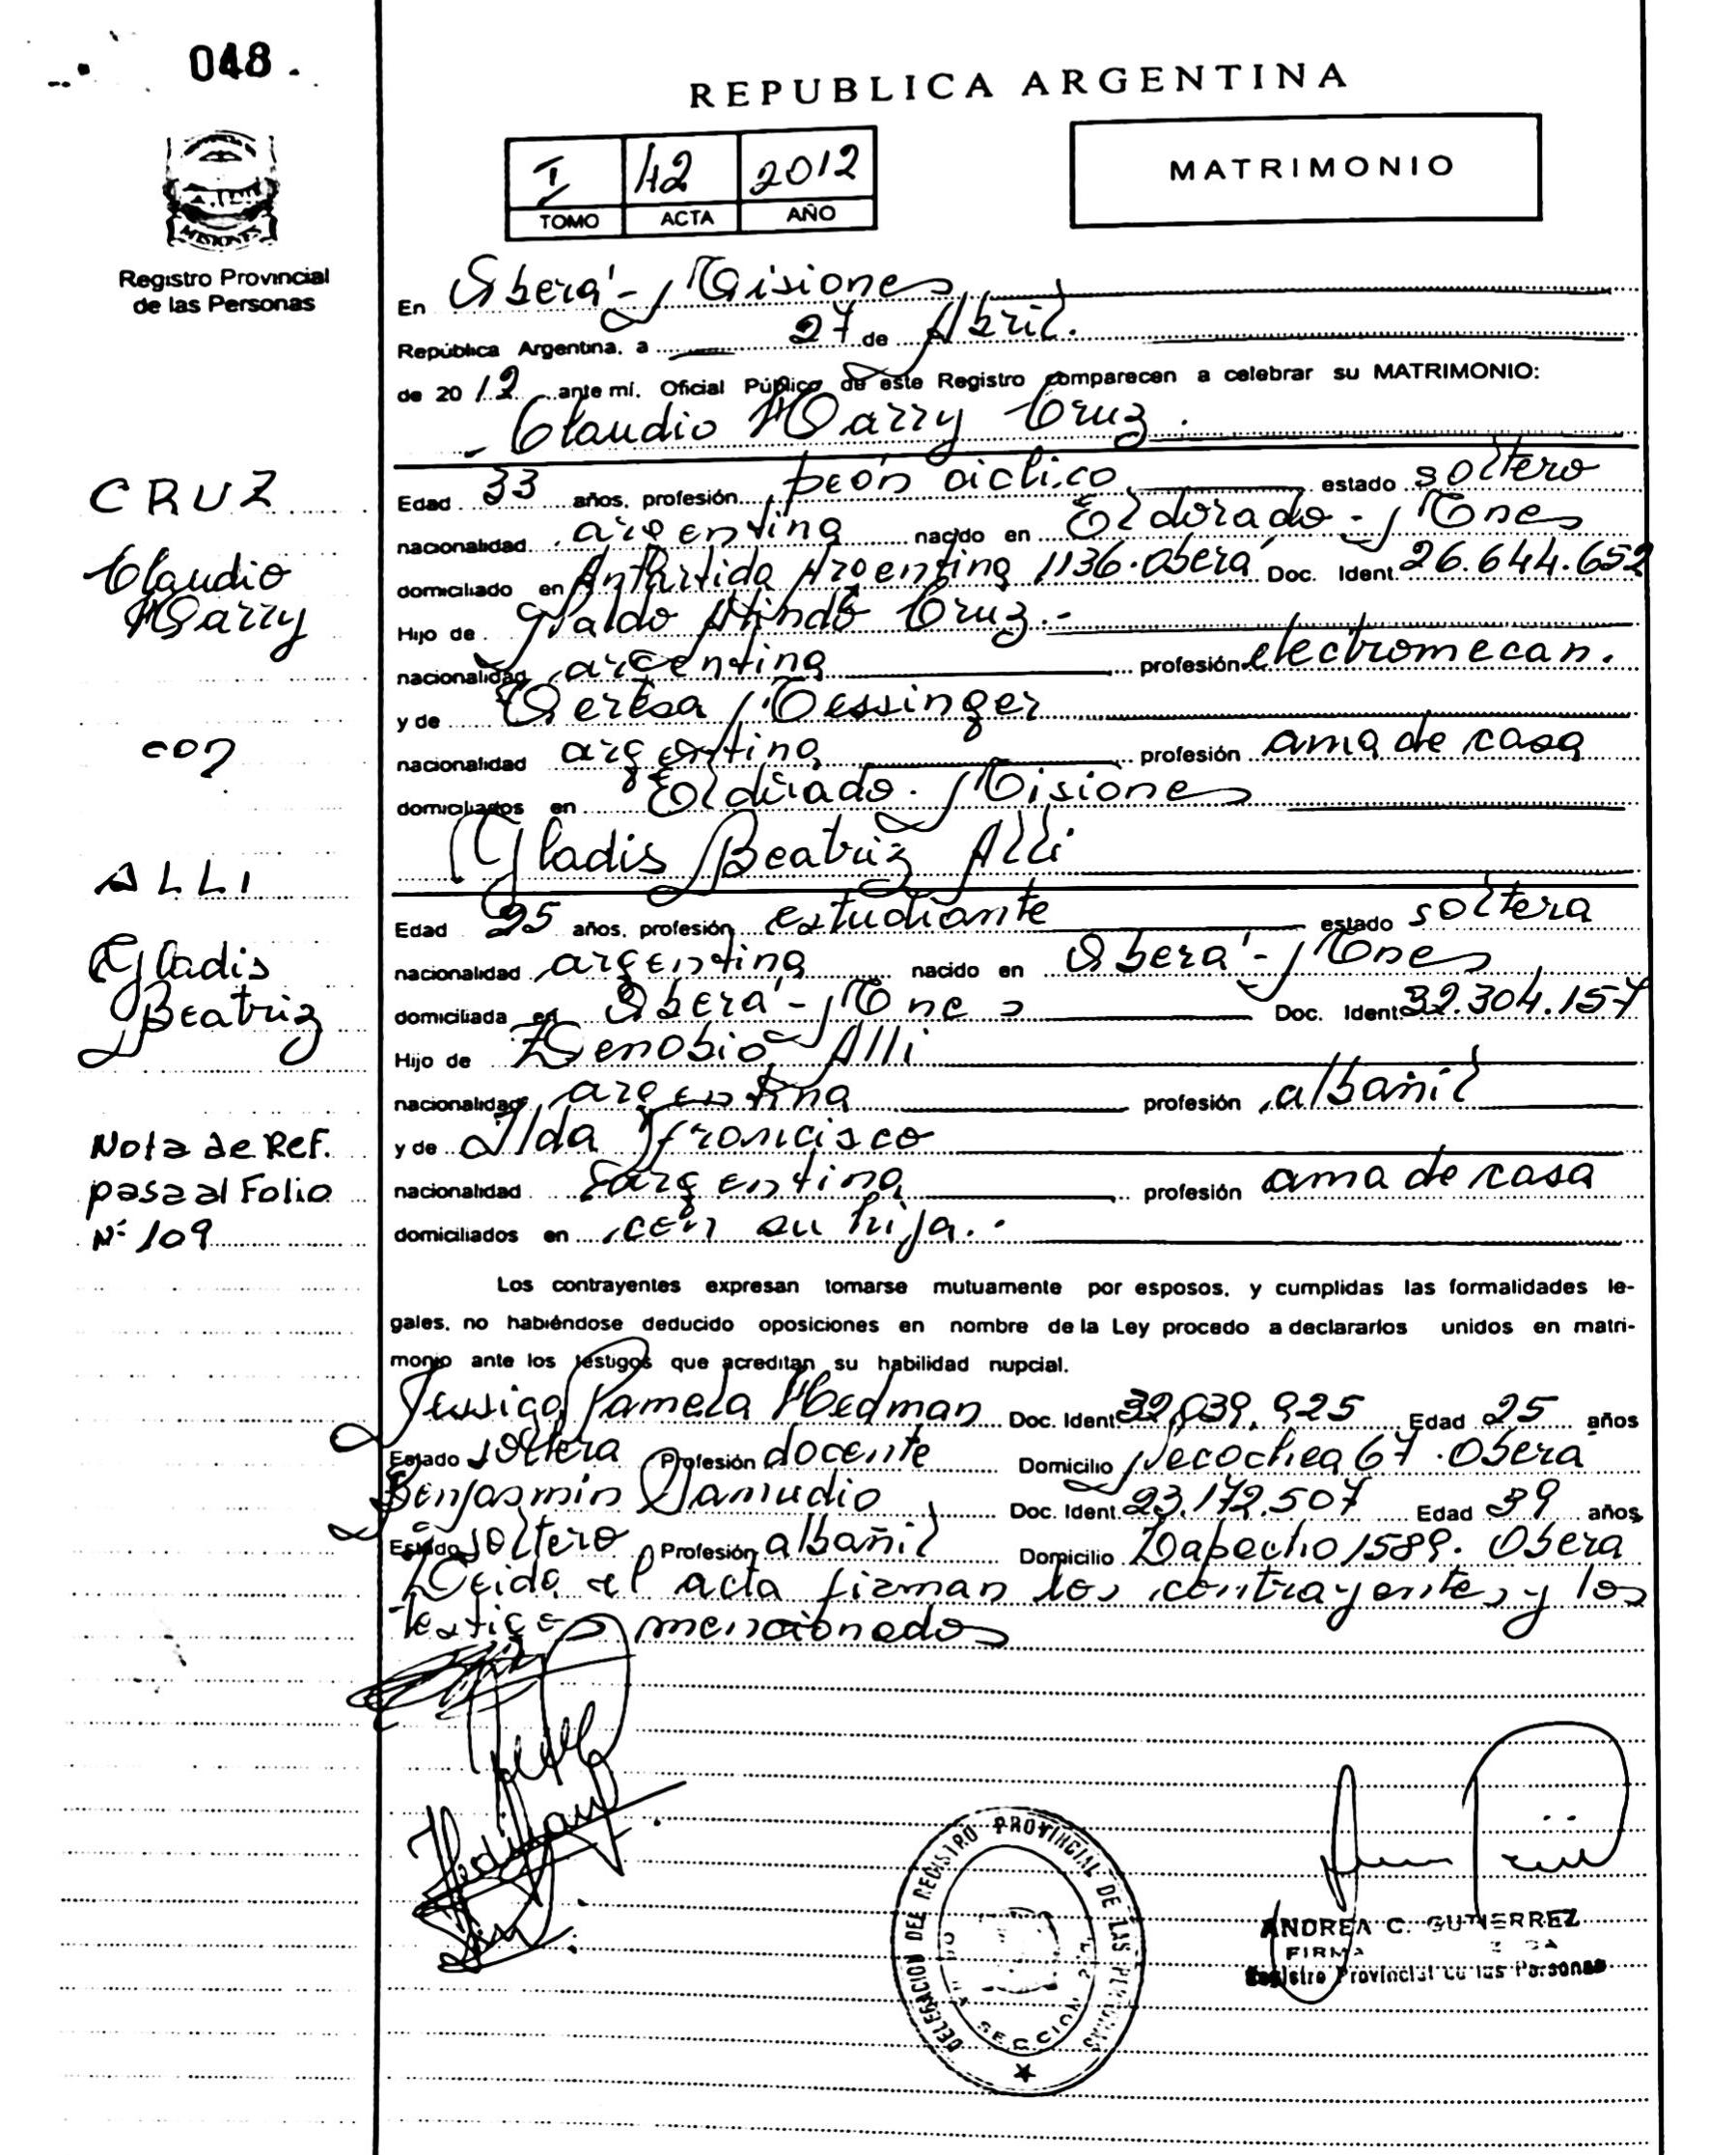 048.
REPUBLICA ARGENTINA
I 42 2012
TOMO ACTA AÑO
MATRIMONIO
MISIONES
Registro Provincial
de las Personas
En Oberá - Misiones
República Argentina, a 27 de Abril.
de 2012 ante mí, Oficial Público de este Registro comparecen a celebrar su MATRIMONIO:
Claudio Harry Cruz.
CRUZ
Claudio
Harry
con
ALLI
Gladis
Beatriz
Nota de Ref.
pasa al Folio
Nº 109
Edad 33 años, profesión peón estado soltero
nacionalidad argentina nacido en Eldorado - Mnes
domiciliado en Antártida Argentina 1136. Oberá Doc. Ident. 26.644.652
Hijo de Cruz.-
nacionalidad argentina profesión electromecan.
y de Teresa Messinger
nacionalidad argentina profesión ama de casa
domiciliados en Eldorado. Misiones
Gladis Beatriz Alli
Edad 25 años, profesión estudiante estado soltera
nacionalidad argentina nacido en Oberá - Mnes
domiciliada en Oberá - Mnes Doc. Ident. 32.304.157
Hijo de Zenobio Alli
nacionalidad argentina profesión albañil
y de Ilda Francisco
nacionalidad argentina profesión ama de casa
domiciliados en con su hija.
Los contrayentes expresan tomarse mutuamente por esposos, y cumplidas las formalidades le-
gales, no habiéndose deducido oposiciones en nombre de la Ley procedo a declararlos unidos en matri-
monio ante los testigos que acreditan su habilidad nupcial.
Jessica Pamela Hedman Doc. Ident. 32.039.925 Edad 25 años
Estado soltera Profesión docente Domicilio Necochea 67. Oberá
Benjasmín Samudio Doc. Ident. 23.172.507 Edad 39 años
Estado soltero Profesión albañil Domicilio 1589. Oberá
Leida el acta firman los contrayentes y los
testigos mencionados
DELEGACION DEL REGISTRO PROVINCIAL DE LAS PERSONAS
SECCION
ANDREA C. GUTIERREZ
FIRMA
Registro Provincial de las Personas